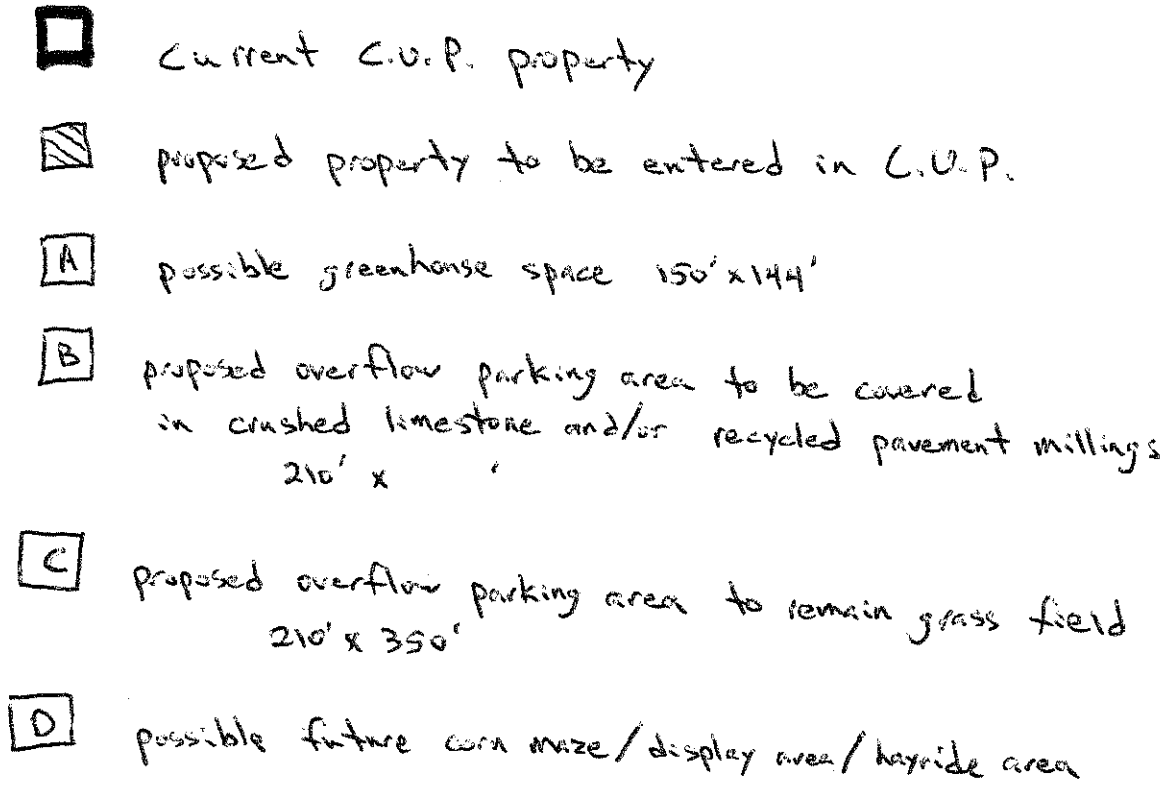 Current C.U.P. property
proposed property to be entered in C.U.P.
A possible greenhouse space 150' x 144'
B proposed overflow parking area to be covered
in crushed limestone and/or recycled pavement millings
210' x '
C proposed overflow parking area to remain grass field
210' x 350'
D possible future corn maze/display area/hayride area